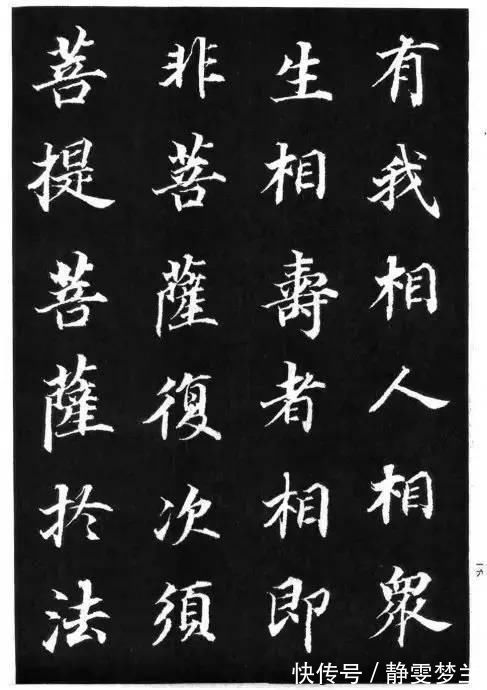 有我相人相眾
生相壽者相即
非菩薩復次須
菩提菩薩於法
十六
快传号/静雯梦兰